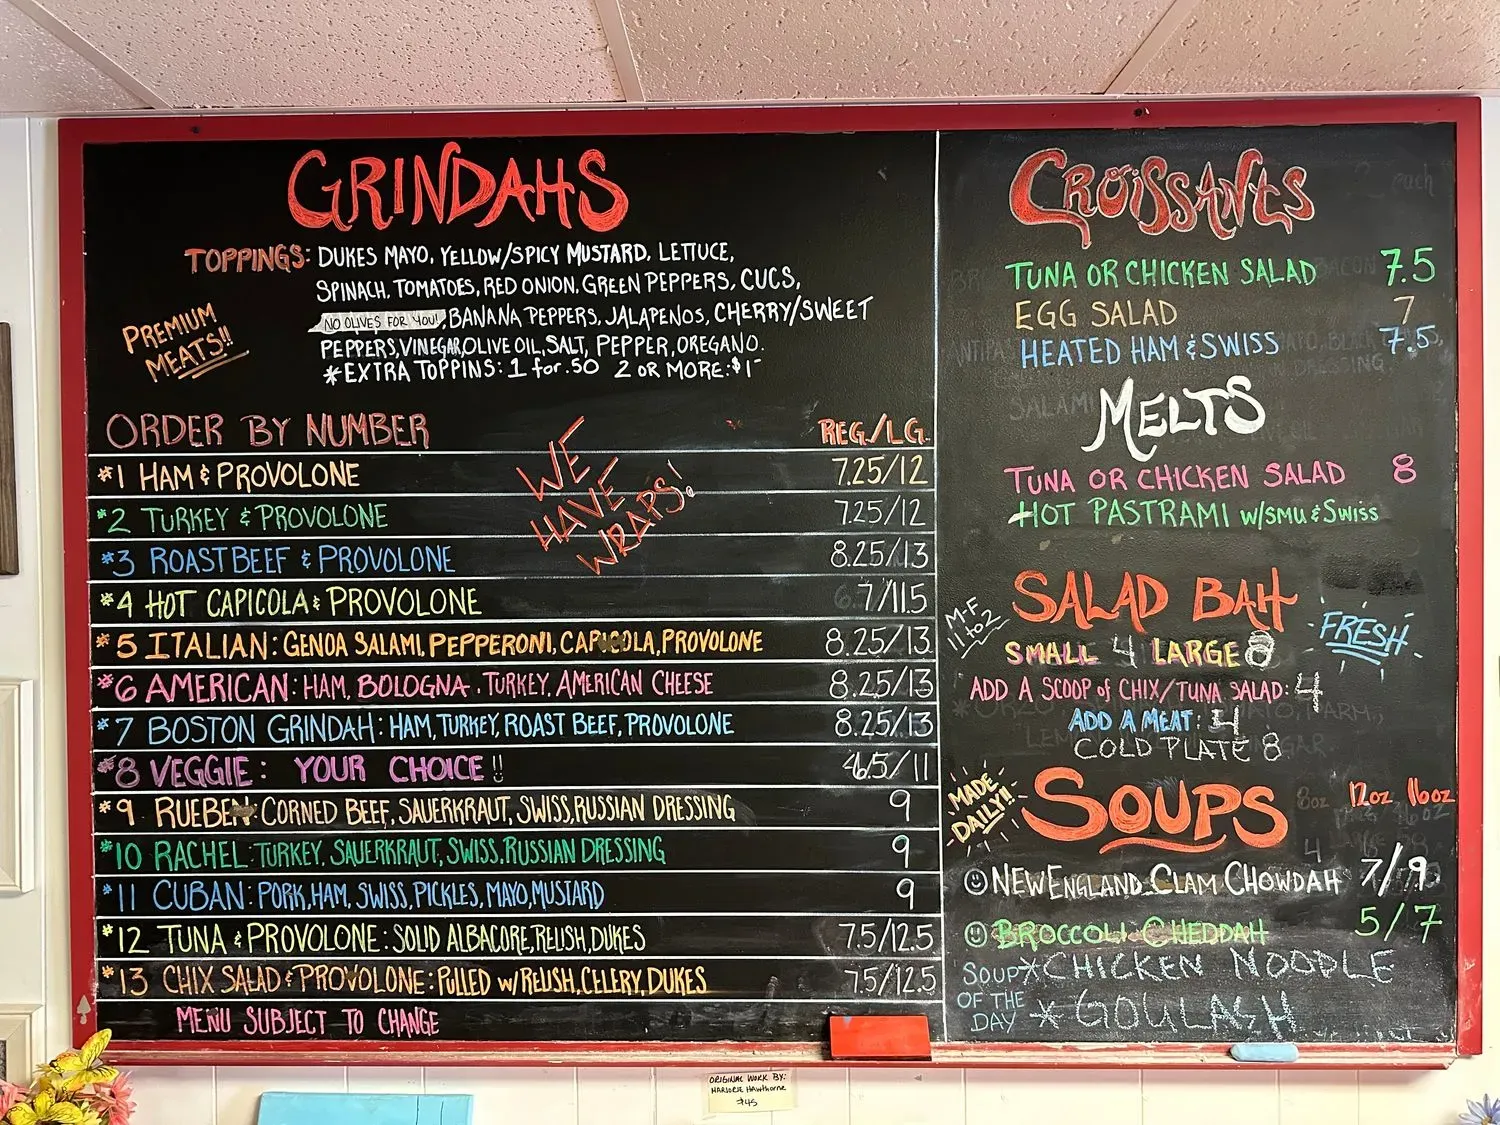 GRINDAHS
TOPPINGS: DUKES MAYO, YELLOW/SPICY MUSTARD, LETTUCE,
SPINACH, TOMATOES, RED ONION, GREEN PEPPERS, CUCS,
NO OLIVES FOR YOU!, BANANA PEPPERS, JALAPENOS, CHERRY/SWEET
PEPPERS, VINEGAR, OLIVE OIL, SALT, PEPPER, OREGANO.
*EXTRA TOPPINS: 1 for .50 2 OR MORE: $1-
PREMIUM
MEATS!!
ORDER BY NUMBER REG./LG.
WE
HAVE
WRAPS!
#1 HAM & PROVOLONE 7.25/12
#2 TURKEY & PROVOLONE 7.25/12
#3 ROAST BEEF & PROVOLONE 8.25/13
#4 HOT CAPICOLA & PROVOLONE 7/11.5
#5 ITALIAN: GENOA SALAMI, PEPPERONI, CAPICOLA, PROVOLONE 8.25/13
#6 AMERICAN: HAM, BOLOGNA, TURKEY, AMERICAN CHEESE 8.25/13
#7 BOSTON GRINDAH: HAM, TURKEY, ROAST BEEF, PROVOLONE 8.25/13
#8 VEGGIE: YOUR CHOICE!! 6.5/11
#9 RUEBEN: CORNED BEEF, SAUERKRAUT, SWISS, RUSSIAN DRESSING 9
#10 RACHEL: TURKEY, SAUERKRAUT, SWISS, RUSSIAN DRESSING 9
#11 CUBAN: PORK, HAM, SWISS, PICKLES, MAYO, MUSTARD 9
#12 TUNA & PROVOLONE: SOLID ALBACORE, RELISH, DUKES 7.5/12.5
#13 CHIX SALAD & PROVOLONE: PULLED W/RELISH, CELERY, DUKES 7.5/12.5
MENU SUBJECT TO CHANGE
CROISSANTS
TUNA OR CHICKEN SALAD 7.5
EGG SALAD 7
HEATED HAM & SWISS 7.5
MELTS
TUNA OR CHICKEN SALAD 8
HOT PASTRAMI W/SMU & SWISS
SALAD BAH
M-F
11 to 2
FRESH
SMALL 4 LARGE 8
ADD A SCOOP of CHIX/TUNA SALAD: 4
ADD A MEAT: 4
COLD PLATE 8
MADE
DAILY!!
SOUPS 8oz 12oz 16oz
NEW ENGLAND CLAM CHOWDAH 7/9
BROCCOLI CHEDDAH 5/7
SOUP
OF THE
DAY
*CHICKEN NOODLE
*GOULASH
ORIGINAL WORK BY:
MARJORIE HAWTHORNE
$45